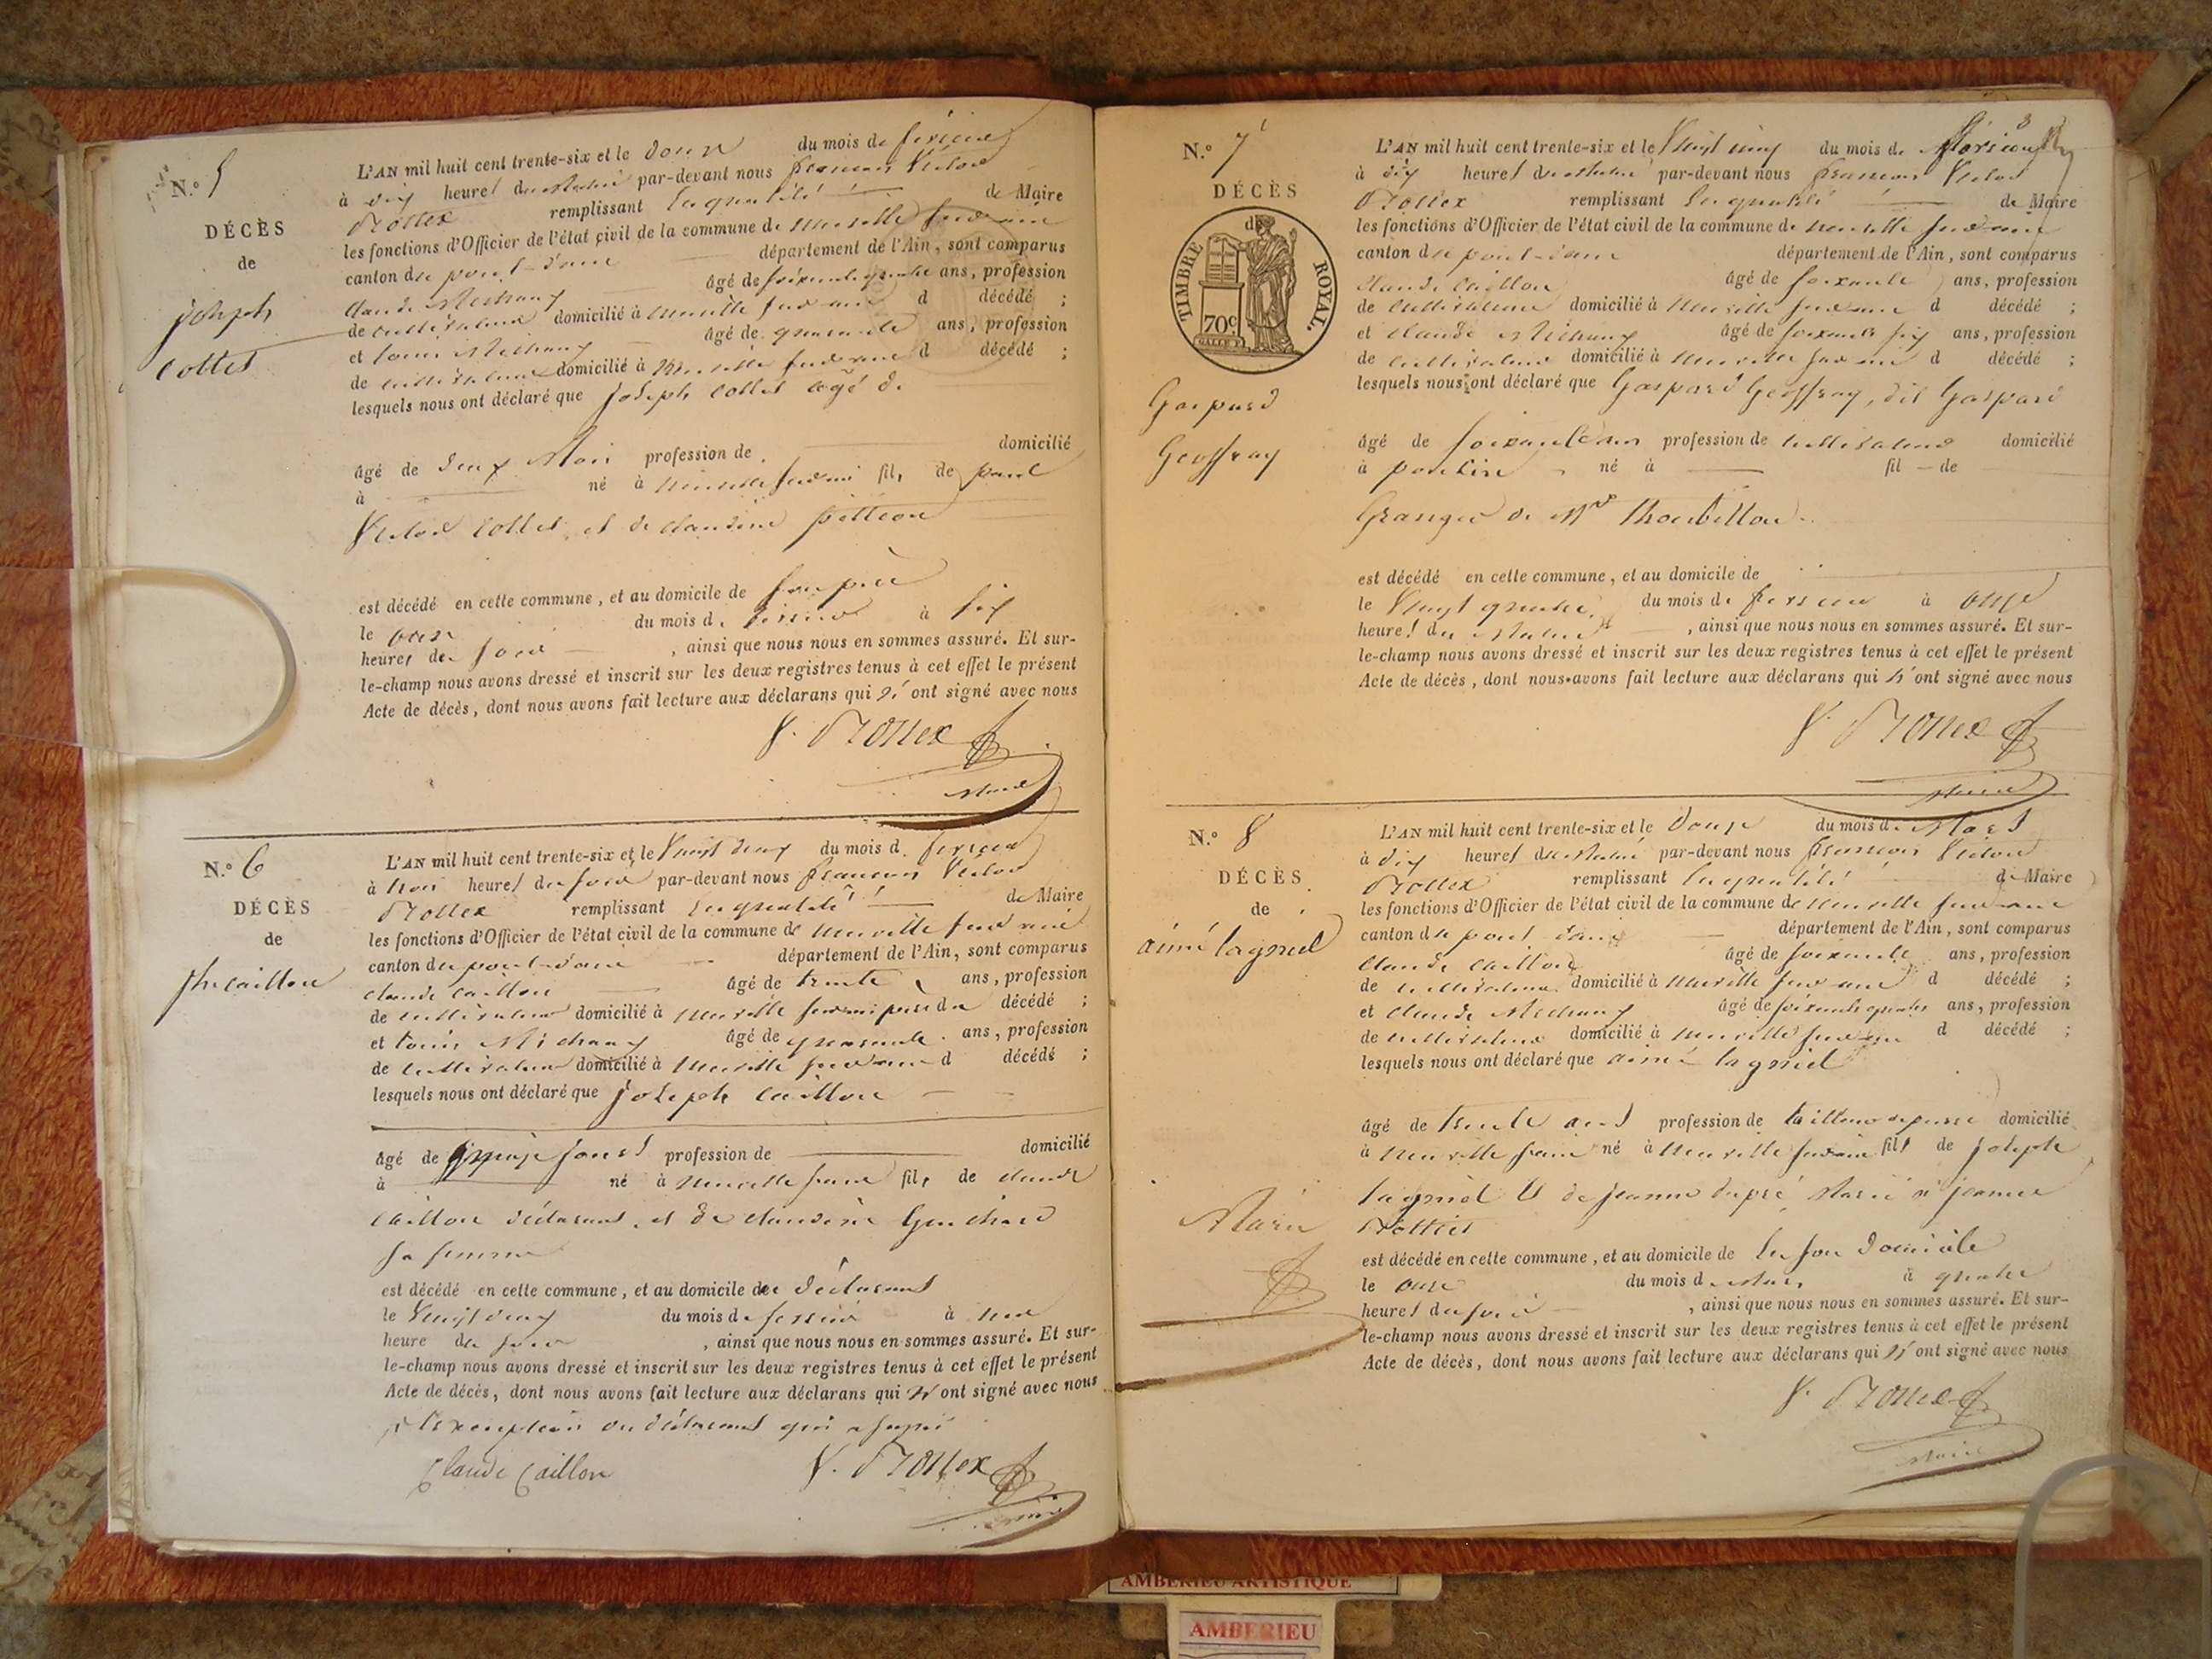 N.º 5
DÉCÈS
de
joseph
Collet
L'AN mil huit cent trente-six et le douze du mois de fevrier
à dix heures du matin par-devant nous françois Victor
Trollex remplissant en qualité de Maire
les fonctions d'Officier de l'état civil de la commune de neuville sur ain
canton de pont-d'ain département de l'Ain, sont comparus
claude Michaux âgé de soixante quatre ans, profession
de cultivateur domicilié à neuville sur ain d décédé ;
et louis Michaux âgé de quarante ans, profession
de cultivateur domicilié à neuville sur ain d décédé ;
lesquels nous ont déclaré que joseph Collet agé de
âgé de deux Mois profession de domicilié
à né à neuville sur ain fils de paul
Victor Collet, et de claudine
est décédé en cette commune, et au domicile de son père
le onze du mois de fevrier à six
heures du soir , ainsi que nous nous en sommes assuré. Et sur-
le-champ nous avons dressé et inscrit sur les deux registres tenus à cet effet le présent
Acte de décès, dont nous avons fait lecture aux déclarans qui n'ont signé avec nous
V. Trollex
Maire
N.º 6
DÉCÈS
de
jh caillon
L'AN mil huit cent trente-six et le Vingt deux du mois de fevrier
à trois heures du soir par-devant nous françois Victor
Trollex remplissant en qualité de Maire
les fonctions d'Officier de l'état civil de la commune de neuville sur ain
canton de pont-d'ain département de l'Ain, sont comparus
claude caillon âgé de trente ans, profession
de cultivateur domicilié à neuville sur ain père du décédé ;
et louis Michaux âgé de quarante ans, profession
de cultivateur domicilié à neuville sur ain d décédé ;
lesquels nous ont déclaré que joseph caillon
âgé de quinze jours profession de domicilié
à né à neuville sur ain fils de claude
caillon déclarant, et de claudine Guichard
sa femme
est décédé en cette commune, et au domicile du déclarant
le Vingt deux du mois de fevrier à une
heure du soir , ainsi que nous nous en sommes assuré. Et sur-
le-champ nous avons dressé et inscrit sur les deux registres tenus à cet effet le présent
Acte de décès, dont nous avons fait lecture aux déclarans qui n'ont signé avec nous
à l'exception du déclarant qui a signé
Claude Caillon V. Trollex
Maire
N.º 7
DÉCÈS
de
TIMBRE ROYAL
70c
Gaspard
Geoffray
L'AN mil huit cent trente-six et le Vingt cinq du mois de fevrier
à dix heures du matin par-devant nous françois Victor
Trollex remplissant en qualité de Maire
les fonctions d'Officier de l'état civil de la commune de neuville sur ain
canton de pont-d'ain département de l'Ain, sont comparus
claude caillon âgé de soixante ans, profession
de cultivateur domicilié à neuville sur ain d décédé ;
et claude Michaux âgé de soixante six ans, profession
de cultivateur domicilié à neuville sur ain d décédé ;
lesquels nous ont déclaré que Gaspard Geoffray, dit Gaspard
âgé de soixante ans profession de cultivateur domicilié
à poncin né à fil de
Granger de Mr
est décédé en cette commune, et au domicile de
le Vingt quatre du mois de fevrier à onze
heures du matin , ainsi que nous nous en sommes assuré. Et sur-
le-champ nous avons dressé et inscrit sur les deux registres tenus à cet effet le présent
Acte de décès, dont nous avons fait lecture aux déclarans qui n'ont signé avec nous
V. Trollex
Maire
N.º 8
DÉCÈS
de
aimé lagniel
Marié
L'AN mil huit cent trente-six et le Douze du mois de Mars
à dix heures du matin par-devant nous françois Victor
Trollex remplissant en qualité de Maire
les fonctions d'Officier de l'état civil de la commune de neuville sur ain
canton de pont-d'ain département de l'Ain, sont comparus
claude caillon âgé de soixante ans, profession
de cultivateur domicilié à neuville sur ain d décédé ;
et claude Michaux âgé de soixante quatre ans, profession
de cultivateur domicilié à neuville sur ain d décédé ;
lesquels nous ont déclaré que aimé lagniel
âgé de trente ans profession de tailleur de pierre domicilié
à neuville s ain né à neuville sur ain fils de joseph
lagniel et de jeanne dupré, Marié à jeanne
Trottier
est décédé en cette commune, et au domicile de en son domicile
le onze du mois de mars à quatre
heures du soir , ainsi que nous nous en sommes assuré. Et sur-
le-champ nous avons dressé et inscrit sur les deux registres tenus à cet effet le présent
Acte de décès, dont nous avons fait lecture aux déclarans qui n'ont signé avec nous
V. Trollex
Maire
AMBERIEU ARTISTIQUE
AMBERIEU